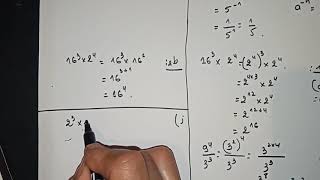 = 5⁻¹
= 1/5¹ = 1/5
a⁻ⁿ
16³ × 2⁴ = 16³ × 16¹ :ab
= 16³⁺¹
= 16⁴
16³ × 2⁴ = (2⁴)³ × 2⁴
= 2⁴ˣ³ × 2⁴
= 2¹² × 2⁴
= 2¹²⁺⁴
= 2¹⁶
2³ ×
(j
9⁴/3³ = (3²)⁴/3³ = 3²ˣ⁴/3³